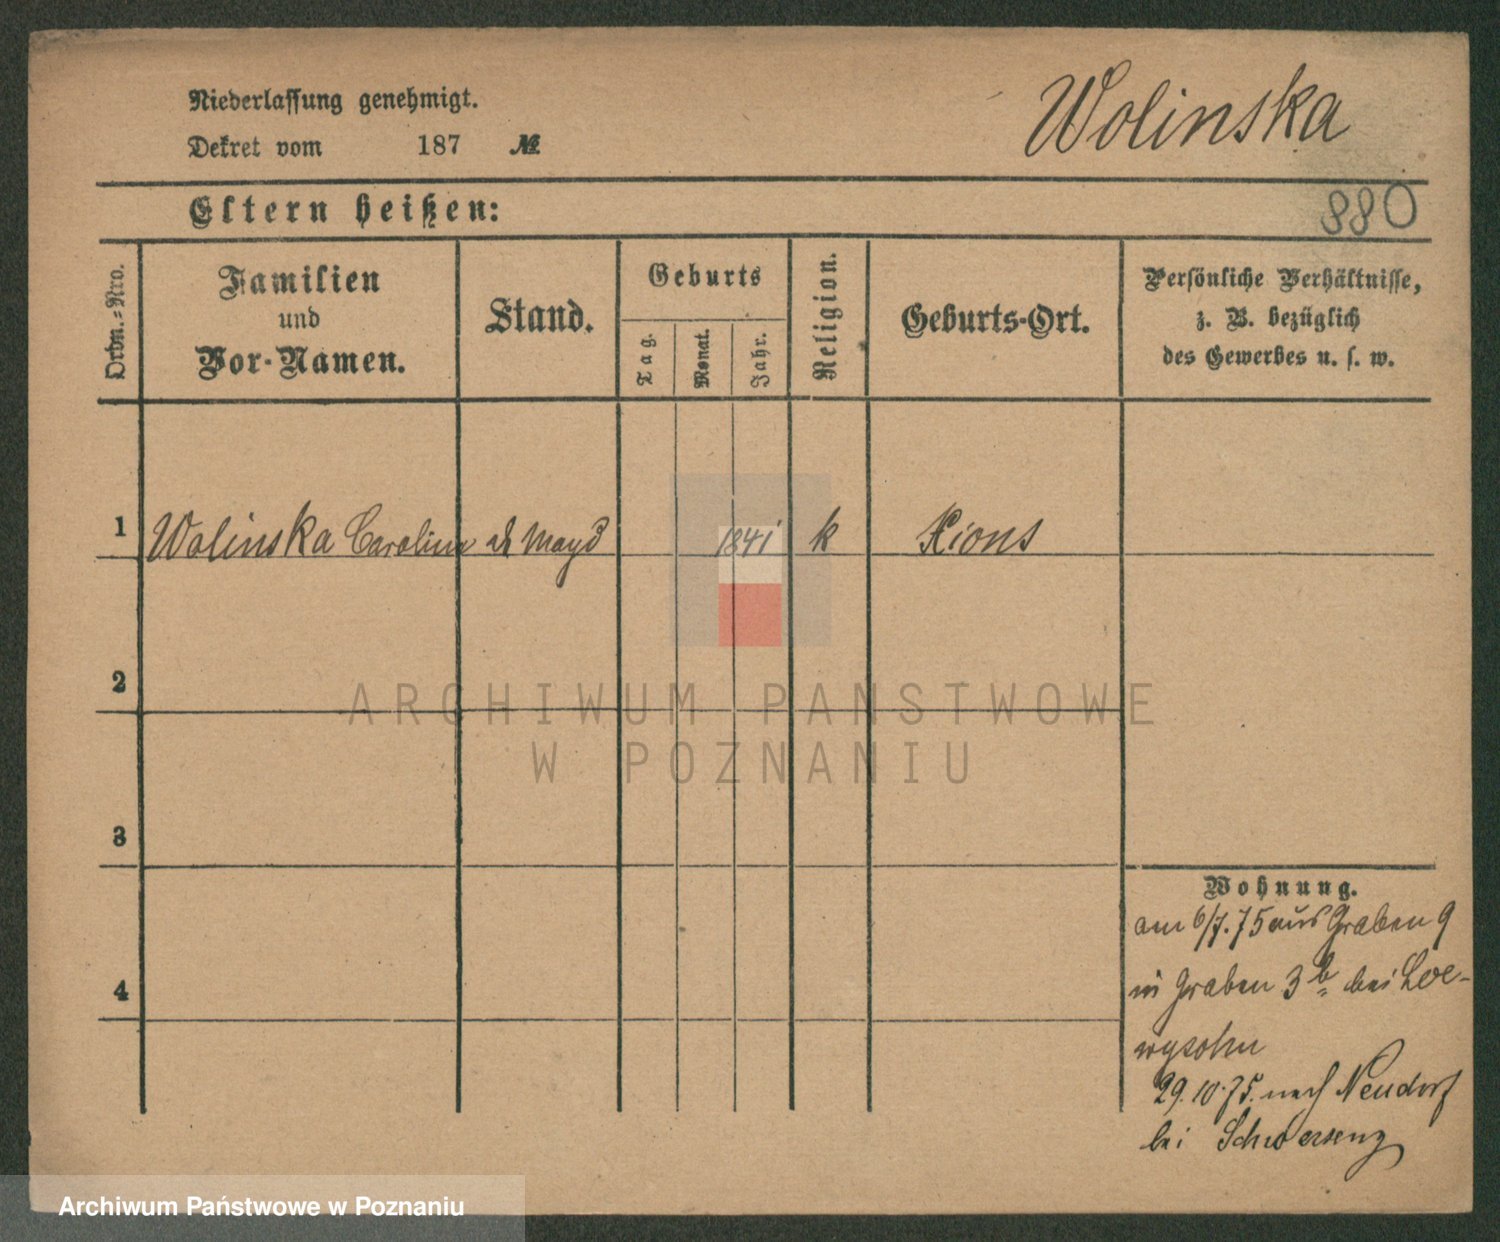 Niederlassung genehmigt.
Dekret vom 187 №
Wolinska
Eltern heißen:
880
Ordn.-Nro.
Familien
und
Vor-Namen.
Stand.
Geburts
Tag.
Monat.
Jahr.
Religion.
Geburts-Ort.
Persönliche Verhältnisse,
z. B. bezüglich
des Gewerbes u. s. w.
1 Wolinska Carolina Magd 1841 k Xions
2
3
4
Wohnung.
am 6/7.75 aus Graben 9
in Graben 3b bei Loe-
wysohn
29.10.75. nach Neudorf
bei Schwersenz
ARCHIWUM PAŃSTWOWE
W POZNANIU
Archiwum Państwowe w Poznaniu